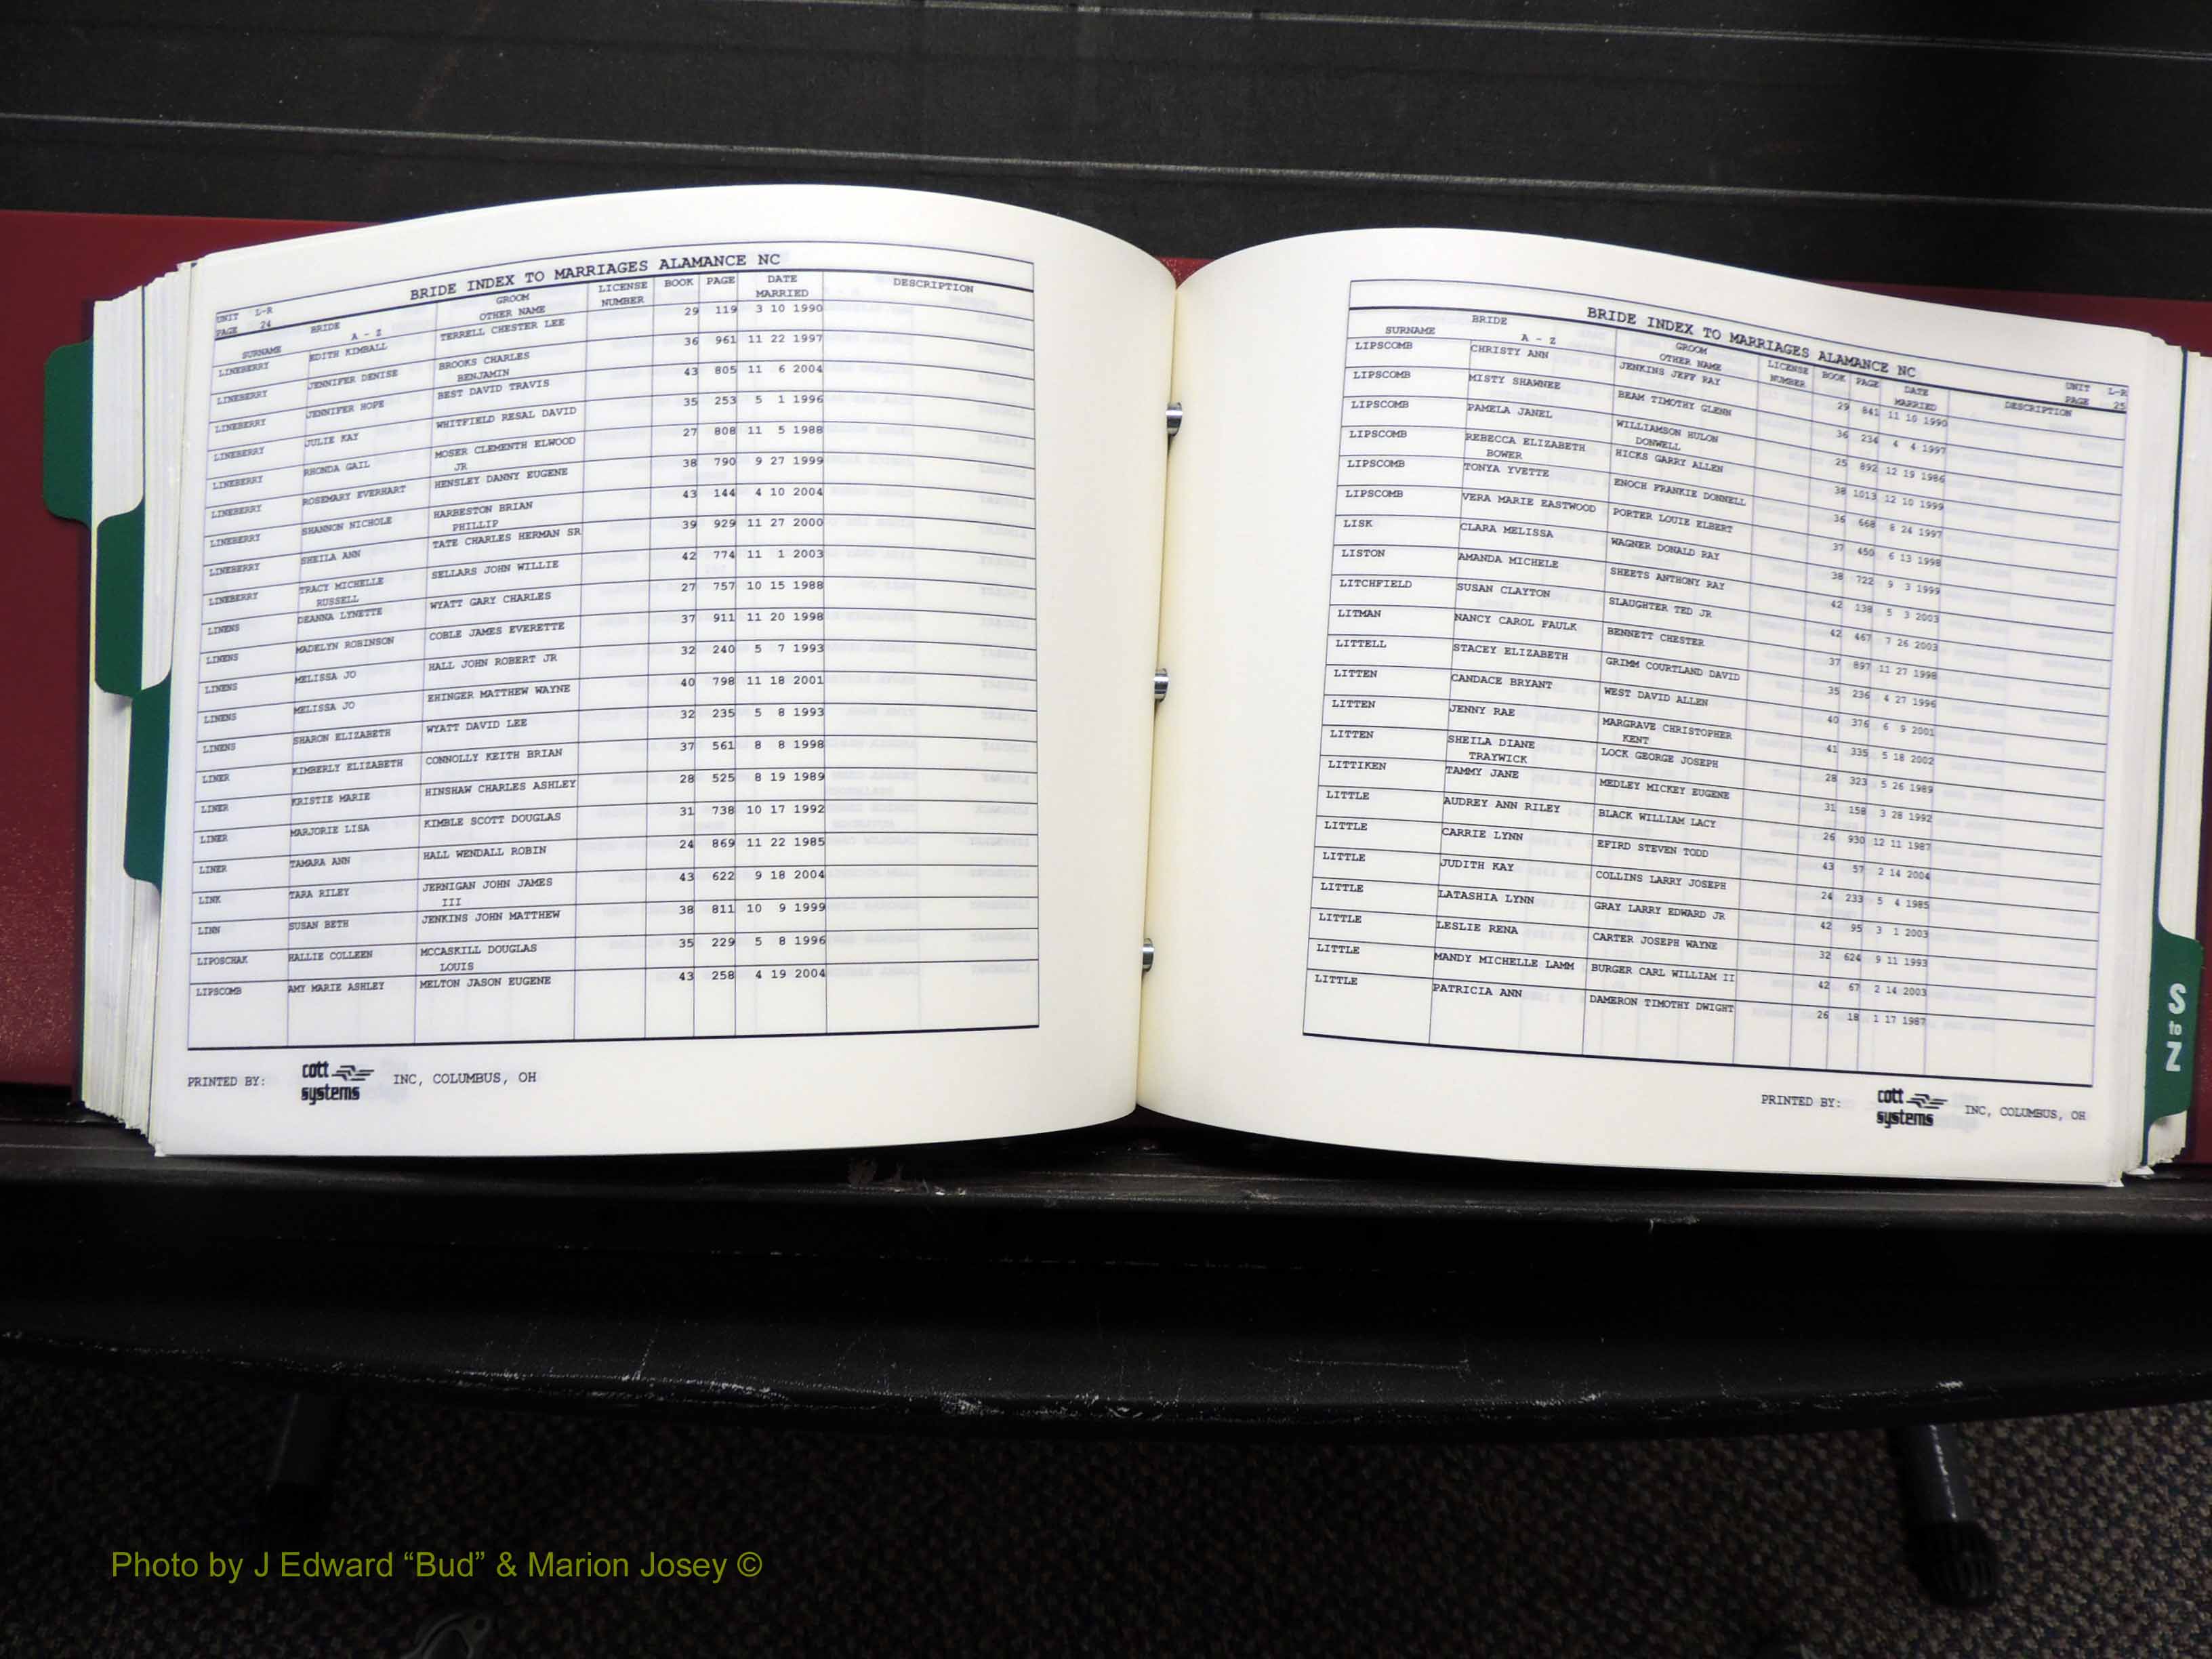 BRIDE INDEX TO MARRIAGES ALAMANCE NC
UNIT L-R
PAGE 24
SURNAME BRIDE A - Z GROOM OTHER NAME LICENSE NUMBER BOOK PAGE DATE MARRIED DESCRIPTION
LINEBERRY EDITH KIMBALL TERRELL CHESTER LEE 29 119 3 10 1990
LINEBERRY JENNIFER DENISE BROOKS CHARLES BENJAMIN 36 961 11 22 1997
LINEBERRY JENNIFER HOPE BEST DAVID TRAVIS 43 805 11 6 2004
LINEBERRY JULIE KAY WHITFIELD RESAL DAVID 35 253 5 1 1996
LINEBERRY RHONDA GAIL MOSER CLEMENTH ELWOOD JR 27 808 11 5 1988
LINEBERRY ROSEMARY EVERHART HENSLEY DANNY EUGENE 38 790 9 27 1999
LINEBERRY SHANNON NICHOLE HARBESTON BRIAN PHILLIP 43 144 4 10 2004
LINEBERRY SHEILA ANN TATE CHARLES HERMAN SR 39 929 11 27 2000
LINEBERRY TRACY MICHELLE RUSSELL SELLARS JOHN WILLIE 42 774 11 1 2003
LINENS DEANNA LYNETTE WYATT GARY CHARLES 27 757 10 15 1988
LINENS MADELYN ROBINSON COBLE JAMES EVERETTE 37 911 11 20 1998
LINENS MELISSA JO HALL JOHN ROBERT JR 32 240 5 7 1993
LINENS MELISSA JO EHINGER MATTHEW WAYNE 40 798 11 18 2001
LINENS SHARON ELIZABETH WYATT DAVID LEE 32 235 5 8 1993
LINER KIMBERLY ELIZABETH CONNOLLY KEITH BRIAN 37 561 8 8 1998
LINER KRISTIE MARIE HINSHAW CHARLES ASHLEY 28 525 8 19 1989
LINER MARJORIE LISA KIMBLE SCOTT DOUGLAS 31 738 10 17 1992
LINER TAMARA ANN HALL WENDALL ROBIN 24 869 11 22 1985
LINK TARA RILEY JERNIGAN JOHN JAMES III 43 622 9 18 2004
LINN SUSAN BETH JENKINS JOHN MATTHEW 38 811 10 9 1999
LIPOSCHAK HALLIE COLLEEN MCCASKILL DOUGLAS LOUIS 35 229 5 8 1996
LIPSCOMB AMY MARIE ASHLEY MELTON JASON EUGENE 43 258 4 19 2004
PRINTED BY: cott systems INC, COLUMBUS, OH
BRIDE INDEX TO MARRIAGES ALAMANCE NC
UNIT L-R
PAGE 25
SURNAME BRIDE A - Z GROOM OTHER NAME LICENSE NUMBER BOOK PAGE DATE MARRIED DESCRIPTION
LIPSCOMB CHRISTY ANN JENKINS JEFF RAY 29 841 11 10 1990
LIPSCOMB MISTY SHAWNEE BEAM TIMOTHY GLENN 36 234 4 4 1997
LIPSCOMB PAMELA JANEL WILLIAMSON HULON DONWELL 25 892 12 19 1986
LIPSCOMB REBECCA ELIZABETH BOWER HICKS GARRY ALLEN 38 1013 12 10 1999
LIPSCOMB TONYA YVETTE ENOCH FRANKIE DONNELL 36 668 8 24 1997
LIPSCOMB VERA MARIE EASTWOOD PORTER LOUIE ELBERT 37 450 6 13 1998
LISK CLARA MELISSA WAGNER DONALD RAY 38 722 9 3 1999
LISTON AMANDA MICHELE SHEETS ANTHONY RAY 42 138 5 3 2003
LITCHFIELD SUSAN CLAYTON SLAUGHTER TED JR 42 467 7 26 2003
LITMAN NANCY CAROL FAULK BENNETT CHESTER 37 897 11 27 1998
LITTELL STACEY ELIZABETH GRIMM COURTLAND DAVID 35 236 4 27 1996
LITTEN CANDACE BRYANT WEST DAVID ALLEN 40 376 6 9 2001
LITTEN JENNY RAE MARGRAVE CHRISTOPHER KENT 41 335 5 18 2002
LITTEN SHEILA DIANE TRAYWICK LOCK GEORGE JOSEPH 28 323 5 26 1989
LITTIKEN TAMMY JANE MEDLEY MICKEY EUGENE 31 158 3 28 1992
LITTLE AUDREY ANN RILEY BLACK WILLIAM LACY 26 930 12 11 1987
LITTLE CARRIE LYNN EFIRD STEVEN TODD 43 57 2 14 2004
LITTLE JUDITH KAY COLLINS LARRY JOSEPH 24 233 5 4 1985
LITTLE LATASHIA LYNN GRAY LARRY EDWARD JR 42 95 3 1 2003
LITTLE LESLIE RENA CARTER JOSEPH WAYNE 32 624 9 11 1993
LITTLE MANDY MICHELLE LAMM BURGER CARL WILLIAM II 42 67 2 14 2003
LITTLE PATRICIA ANN DAMERON TIMOTHY DWIGHT 26 18 1 17 1987
PRINTED BY: cott systems INC, COLUMBUS, OH
S to Z
Photo by J Edward “Bud” & Marion Josey ©